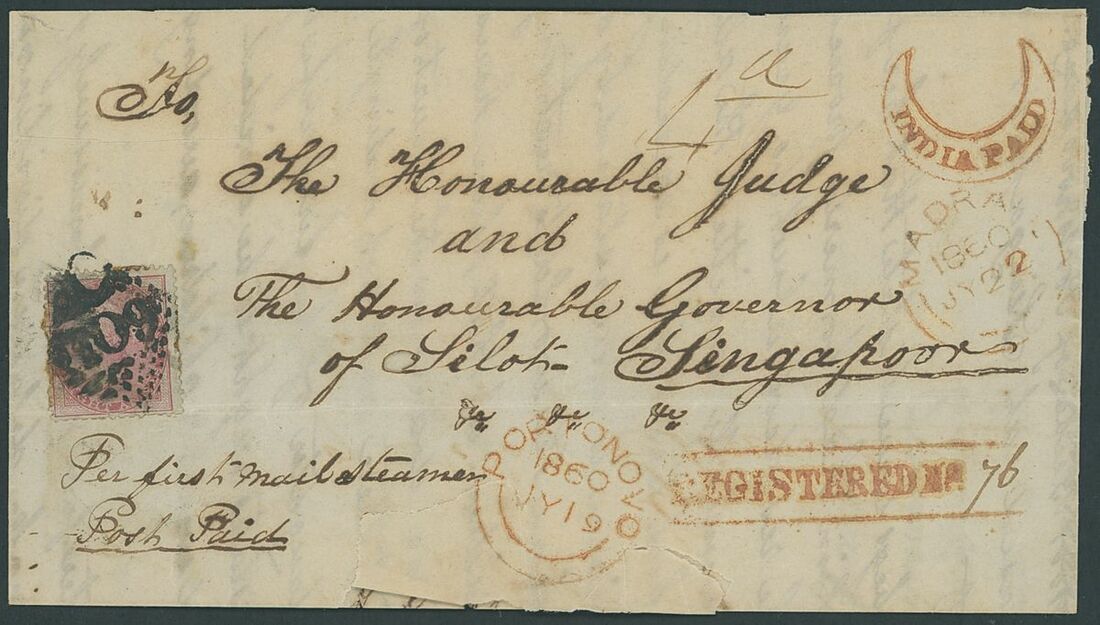 To,
4d
INDIA PAID
The Honourable Judge
and
MADRAS
1860
JY 22
The Honourable Governor
of Silot- Singapoor
&c,, &c,, &c,,
Per first mail steamer
Post Paid
PORTONOVO
1860
JY 19
REGISTERED No 76